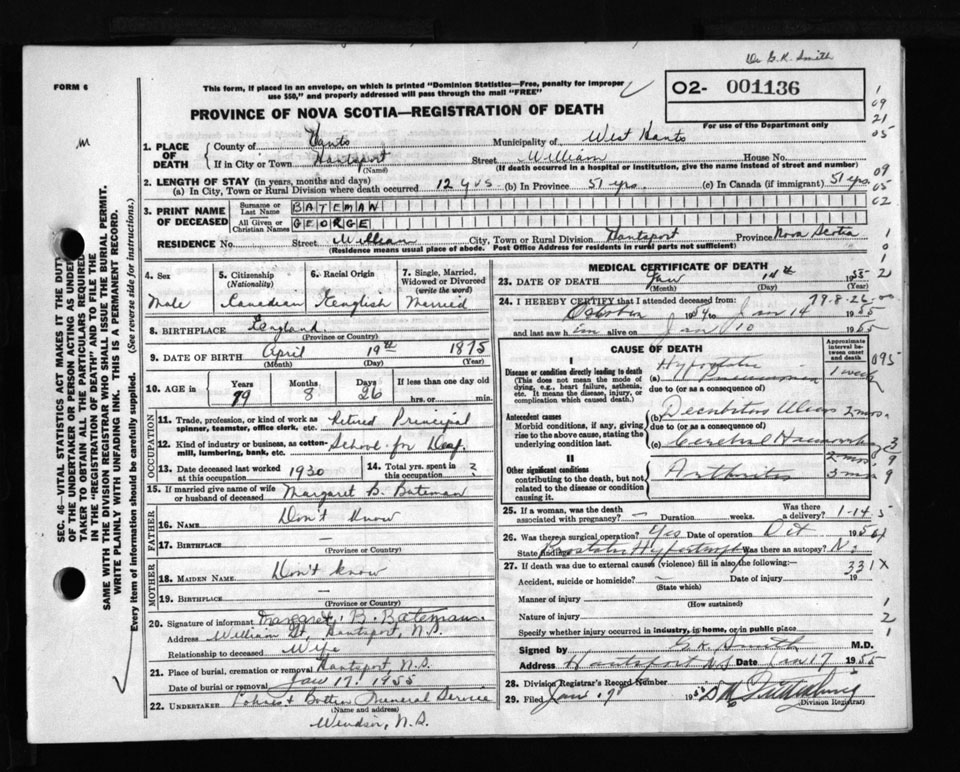 Dr G.K. Smith
FORM 6
This form, if placed in an envelope, on which is printed "Dominion Statistics—Free, penalty for improper
use $50," and properly addressed will pass through the mail "FREE"
02- 001136
For use of the Department only
PROVINCE OF NOVA SCOTIA—REGISTRATION OF DEATH
m
1 09 21 05
1. PLACE OF DEATH
County of Hants Municipality of West Hants
If in City or Town Hantsport (Name) Street William House No.
(If death occurred in a hospital or institution, give the name instead of street and number)
2. LENGTH OF STAY (in years, months and days)
(a) In City, Town or Rural Division where death occurred 12 yrs (b) In Province 51 yrs. (c) In Canada (if immigrant) 51 yrs.
09 05 02
3. PRINT NAME OF DECEASED
Surname or Last Name BATEMAN
All Given or Christian Names GEORGE
RESIDENCE No. Street William City, Town or Rural Division Hantsport Province Nova Scotia
(Residence means usual place of abode. Post Office Address for residents in rural parts not sufficient)
4. Sex Male
5. Citizenship (Nationality) Canadian
6. Racial Origin English
7. Single, Married, Widowed or Divorced (write the word) Married
8. BIRTHPLACE England
(Province or Country)
9. DATE OF BIRTH April (Month) 19th (Day) 1875 (Year)
10. AGE in Years 79 Months 8 Days 26 If less than one day old hrs. or min.
OCCUPATION
11. Trade, profession, or kind of work as spinner, teamster, office clerk, etc. Retired Principal
12. Kind of industry or business, as cotton-mill, lumbering, bank, etc. School for Deaf.
13. Date deceased last worked at this occupation 1930
14. Total yrs. spent in this occupation ?
15. If married give name of wife or husband of deceased Margaret B. Bateman
FATHER
16. NAME Don't know
17. BIRTHPLACE —
(Province or Country)
MOTHER
18. MAIDEN NAME Don't know
19. BIRTHPLACE —
(Province or Country)
20. Signature of informant Margaret B. Bateman
Address William St, Hantsport, N.S.
Relationship to deceased Wife
21. Place of burial, cremation or removal Hantsport N.S.
Date of burial or removal Jan 17, 1955
22. UNDERTAKER Funeral Service
(Name and address)
Windsor, N.S.
MEDICAL CERTIFICATE OF DEATH
23. DATE OF DEATH Jan (Month) 14th (Day) 1955 (Year)
24. I HEREBY CERTIFY that I attended deceased from 79-8-26
October 1954 to Jan 14 1955
and last saw him alive on Jan 10 1955
CAUSE OF DEATH
Approximate interval between onset and death
I
Disease or condition directly leading to death
(This does not mean the mode of dying, e.g., heart failure, asthenia, etc. It means the disease, injury, or complication which caused death.)
(a) Hypostatic Pneumonia 1 week
due to (or as a consequence of)
Antecedent causes
Morbid conditions, if any, giving rise to the above cause, stating the underlying condition last.
(b) Decubitus Ulcers 2 mos.
due to (or as a consequence of)
(c) Cerebral Haemorrhage
2 mos.
II
Other significant conditions
contributing to the death, but not related to the disease or condition causing it.
Arthritis
25. If a woman, was the death associated with pregnancy? — Duration weeks. Was there a delivery?
26. Was there a surgical operation? Yes Date of operation Oct 1954
State findings Prostatic Hypertrophy Was there an autopsy? No
27. If death was due to external causes (violence) fill in also the following:—
331X
Accident, suicide or homicide? — Date of injury 19
(State which)
Manner of injury
(How sustained)
Nature of injury
Specify whether injury occurred in industry, in home, or in public place
Signed by G.K. Smith M.D.
Address Hantsport N.S Date Jan 17 1955
28. Division Registrar's Record Number
29. Filed Jan. 17 1955
(Division Registrar)
SEC. 46—VITAL STATISTICS ACT MAKES IT THE DUTY
OF THE UNDERTAKER OR PERSON ACTING AS UNDER-
TAKER TO OBTAIN ALL THE PARTICULARS REQUIRED
IN THE "REGISTRATION OF DEATH" AND TO FILE THE
SAME WITH THE DIVISION REGISTRAR WHO SHALL ISSUE THE BURIAL PERMIT.
WRITE PLAINLY WITH UNFADING INK. THIS IS A PERMANENT RECORD.
Every item of information should be carefully supplied. (See reverse side for instructions.)